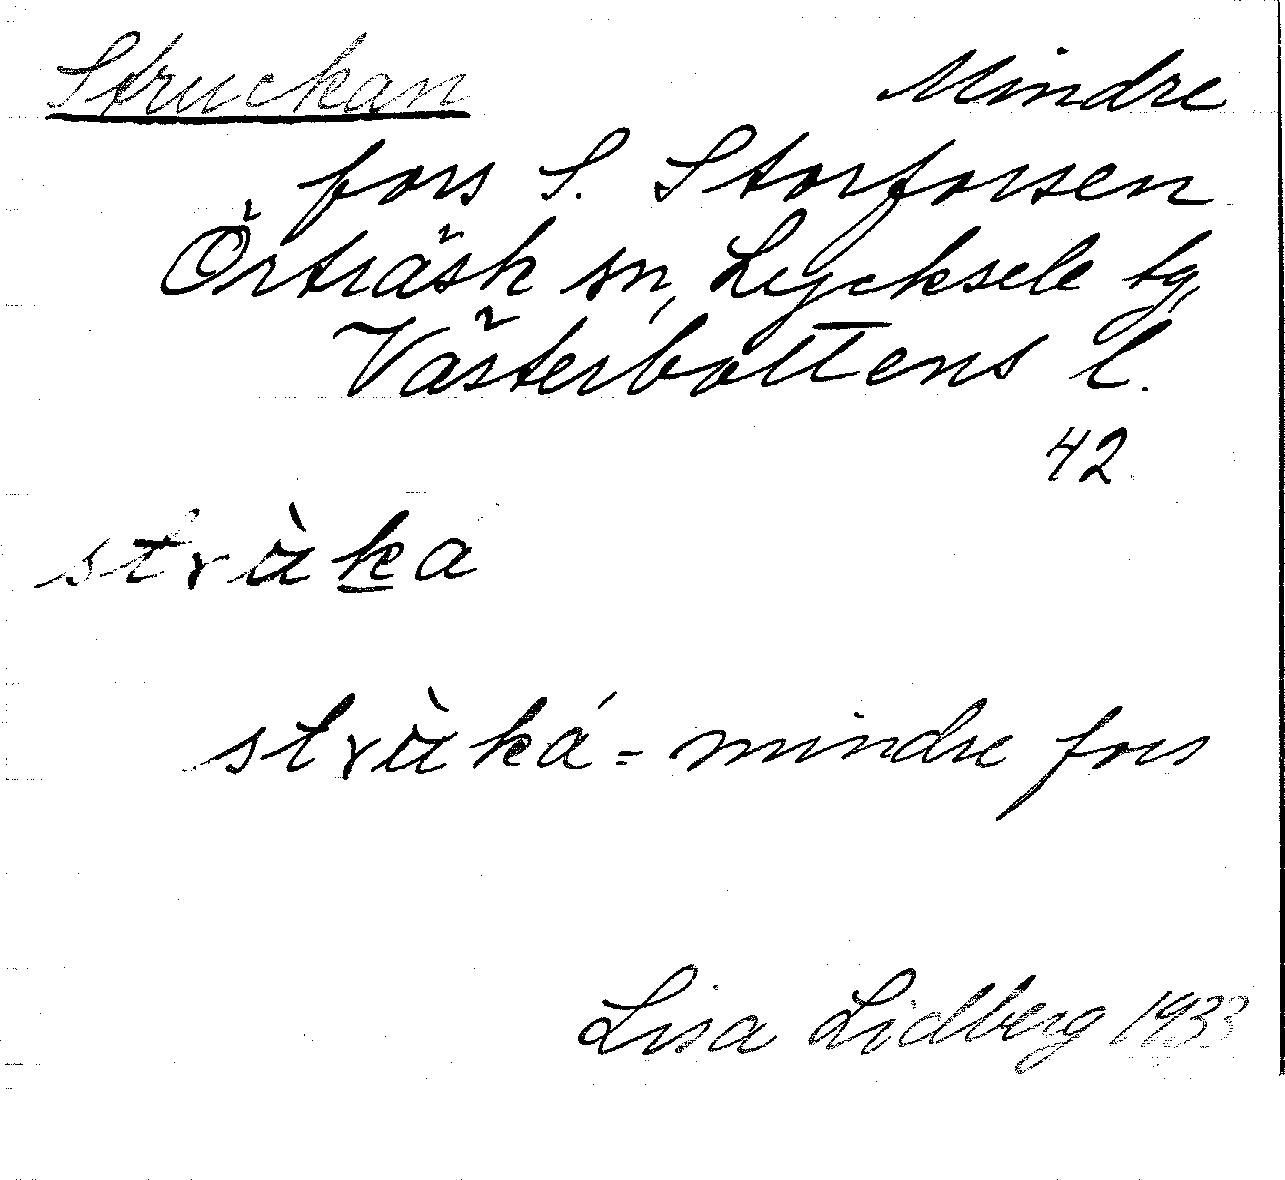 Struckan Mindre
fors S. Storforsen
Örträsk sn, Lycksele tg,
Västerbottens l.
42
strùka
strùká = mindre fors
Lisa Lidberg 1933